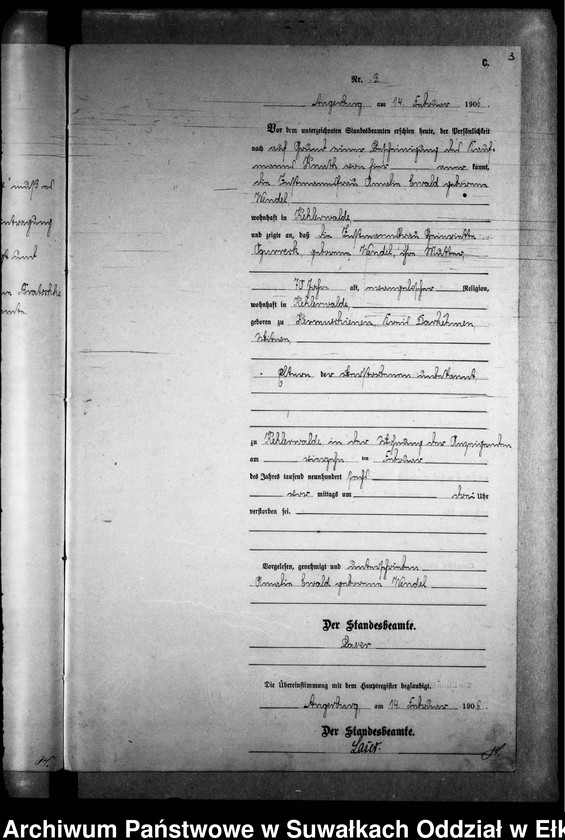 C.
3
Nr. 3
Angerburg am 14. Februar 1906.
Vor dem unterzeichneten Standesbeamten erschien heute, der Persönlichkeit
nach auf Grund einer Bescheinigung des Kauf-
manns Knuth von hier kannt,
die Instmannsfrau Amalie Ewald geborene
Wendel,
wohnhaft in Kehlerwalde,
und zeigte an, daß die Instmannsfrau Henriette
geborene Wendel, ihre Mutter,
70 Jahre alt, evangelischer Religion,
wohnhaft in Kehlerwalde,
geboren zu Kreis Darkehmen,
Witwe,
Eltern der Verstorbenen unbekannt,
zu Kehlerwalde in der Wohnung der Anzeigenden
am vierzehn ten Februar
des Jahres tausend neunhundert sechs
vor mittags um drei Uhr
verstorben sei.
Vorgelesen, genehmigt und unterschrieben
Amalie Ewald geborene Wendel
Der Standesbeamte.
Lauer
Die Übereinstimmung mit dem Hauptregister beglaubigt.
Angerburg am 14. Februar 1906.
Der Standesbeamte.
Lauer.
Archiwum Państwowe w Suwałkach Oddział w Ełk